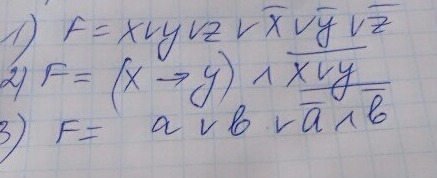 1) F = x∨y∨z ∨ x̅ ∨ y̅ ∨ z̅
2) F = (x → y) ∧ x̅∨̅y̅
3) F = a ∨ b ∨ a̅ ∧ b̅